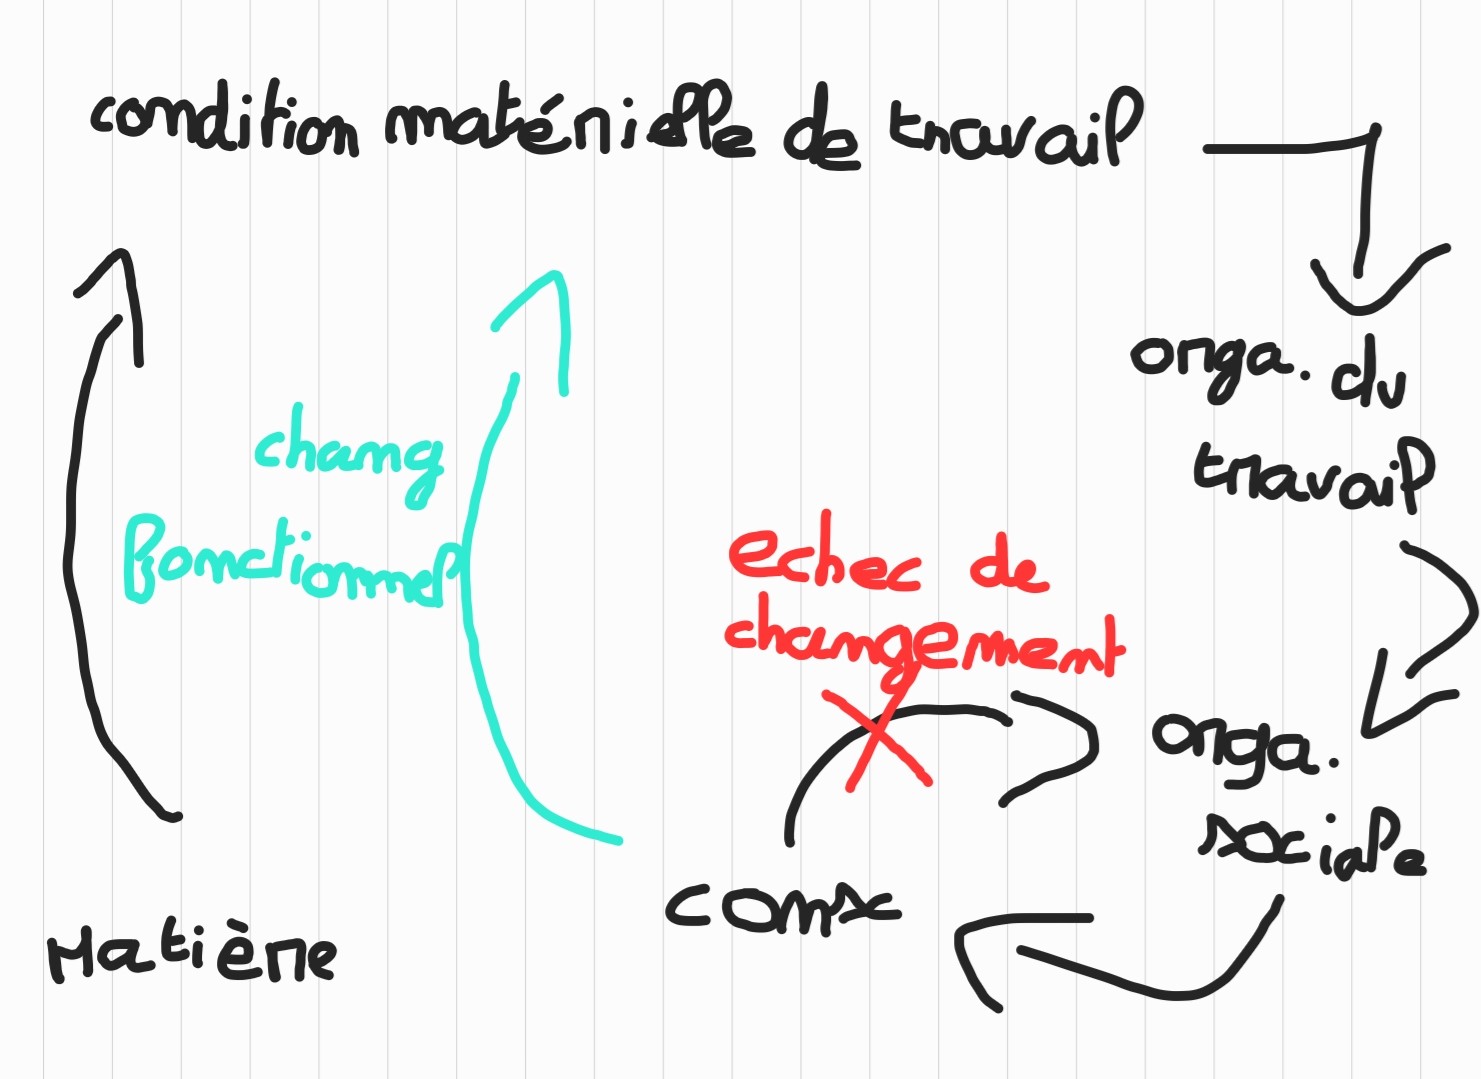 condition matérielle de travail
orga. du
travail
chang
fonctionnel
echec de
changement
orga.
sociale
consc
Matière